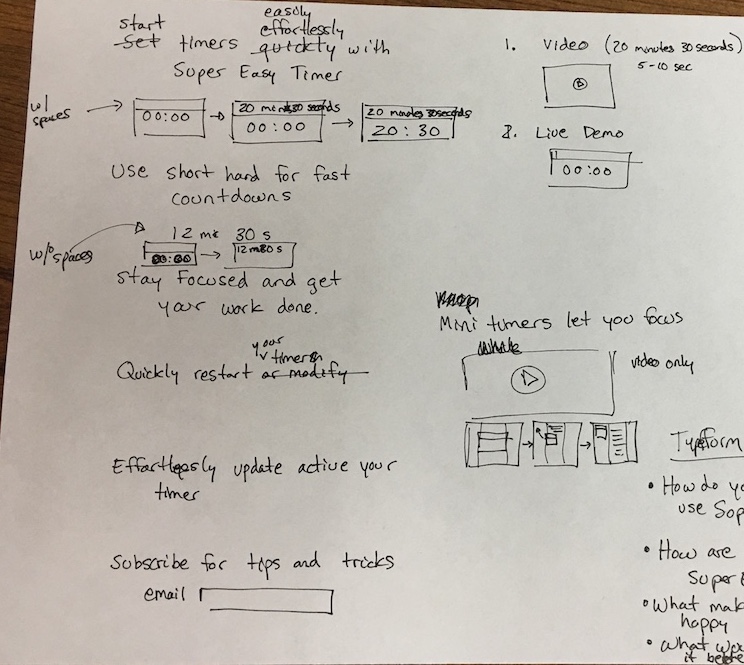 easily
start effortlessly
Set timers quickly with
Super Easy Timer
w/
spaces
00:00
20 minutes 30 seconds
00:00
20 minutes 30 seconds
20:30
Use short hard for fast
countdowns
w/o spaces
12 m 30 s
00:00
12m30s
Stay Focused and get
your work done.
your
Quickly restart timer or modify
Effortlessly update active your
timer
Subscribe for tips and tricks
email
1. Video (20 minutes 30 seconds)
5-10 sec
2. Live Demo
00:00
Mini timers let you focus
while
video only
Typeform
• How do yo
use Sup
• How are
Super E
• What mak
happy
• What wo
it bette